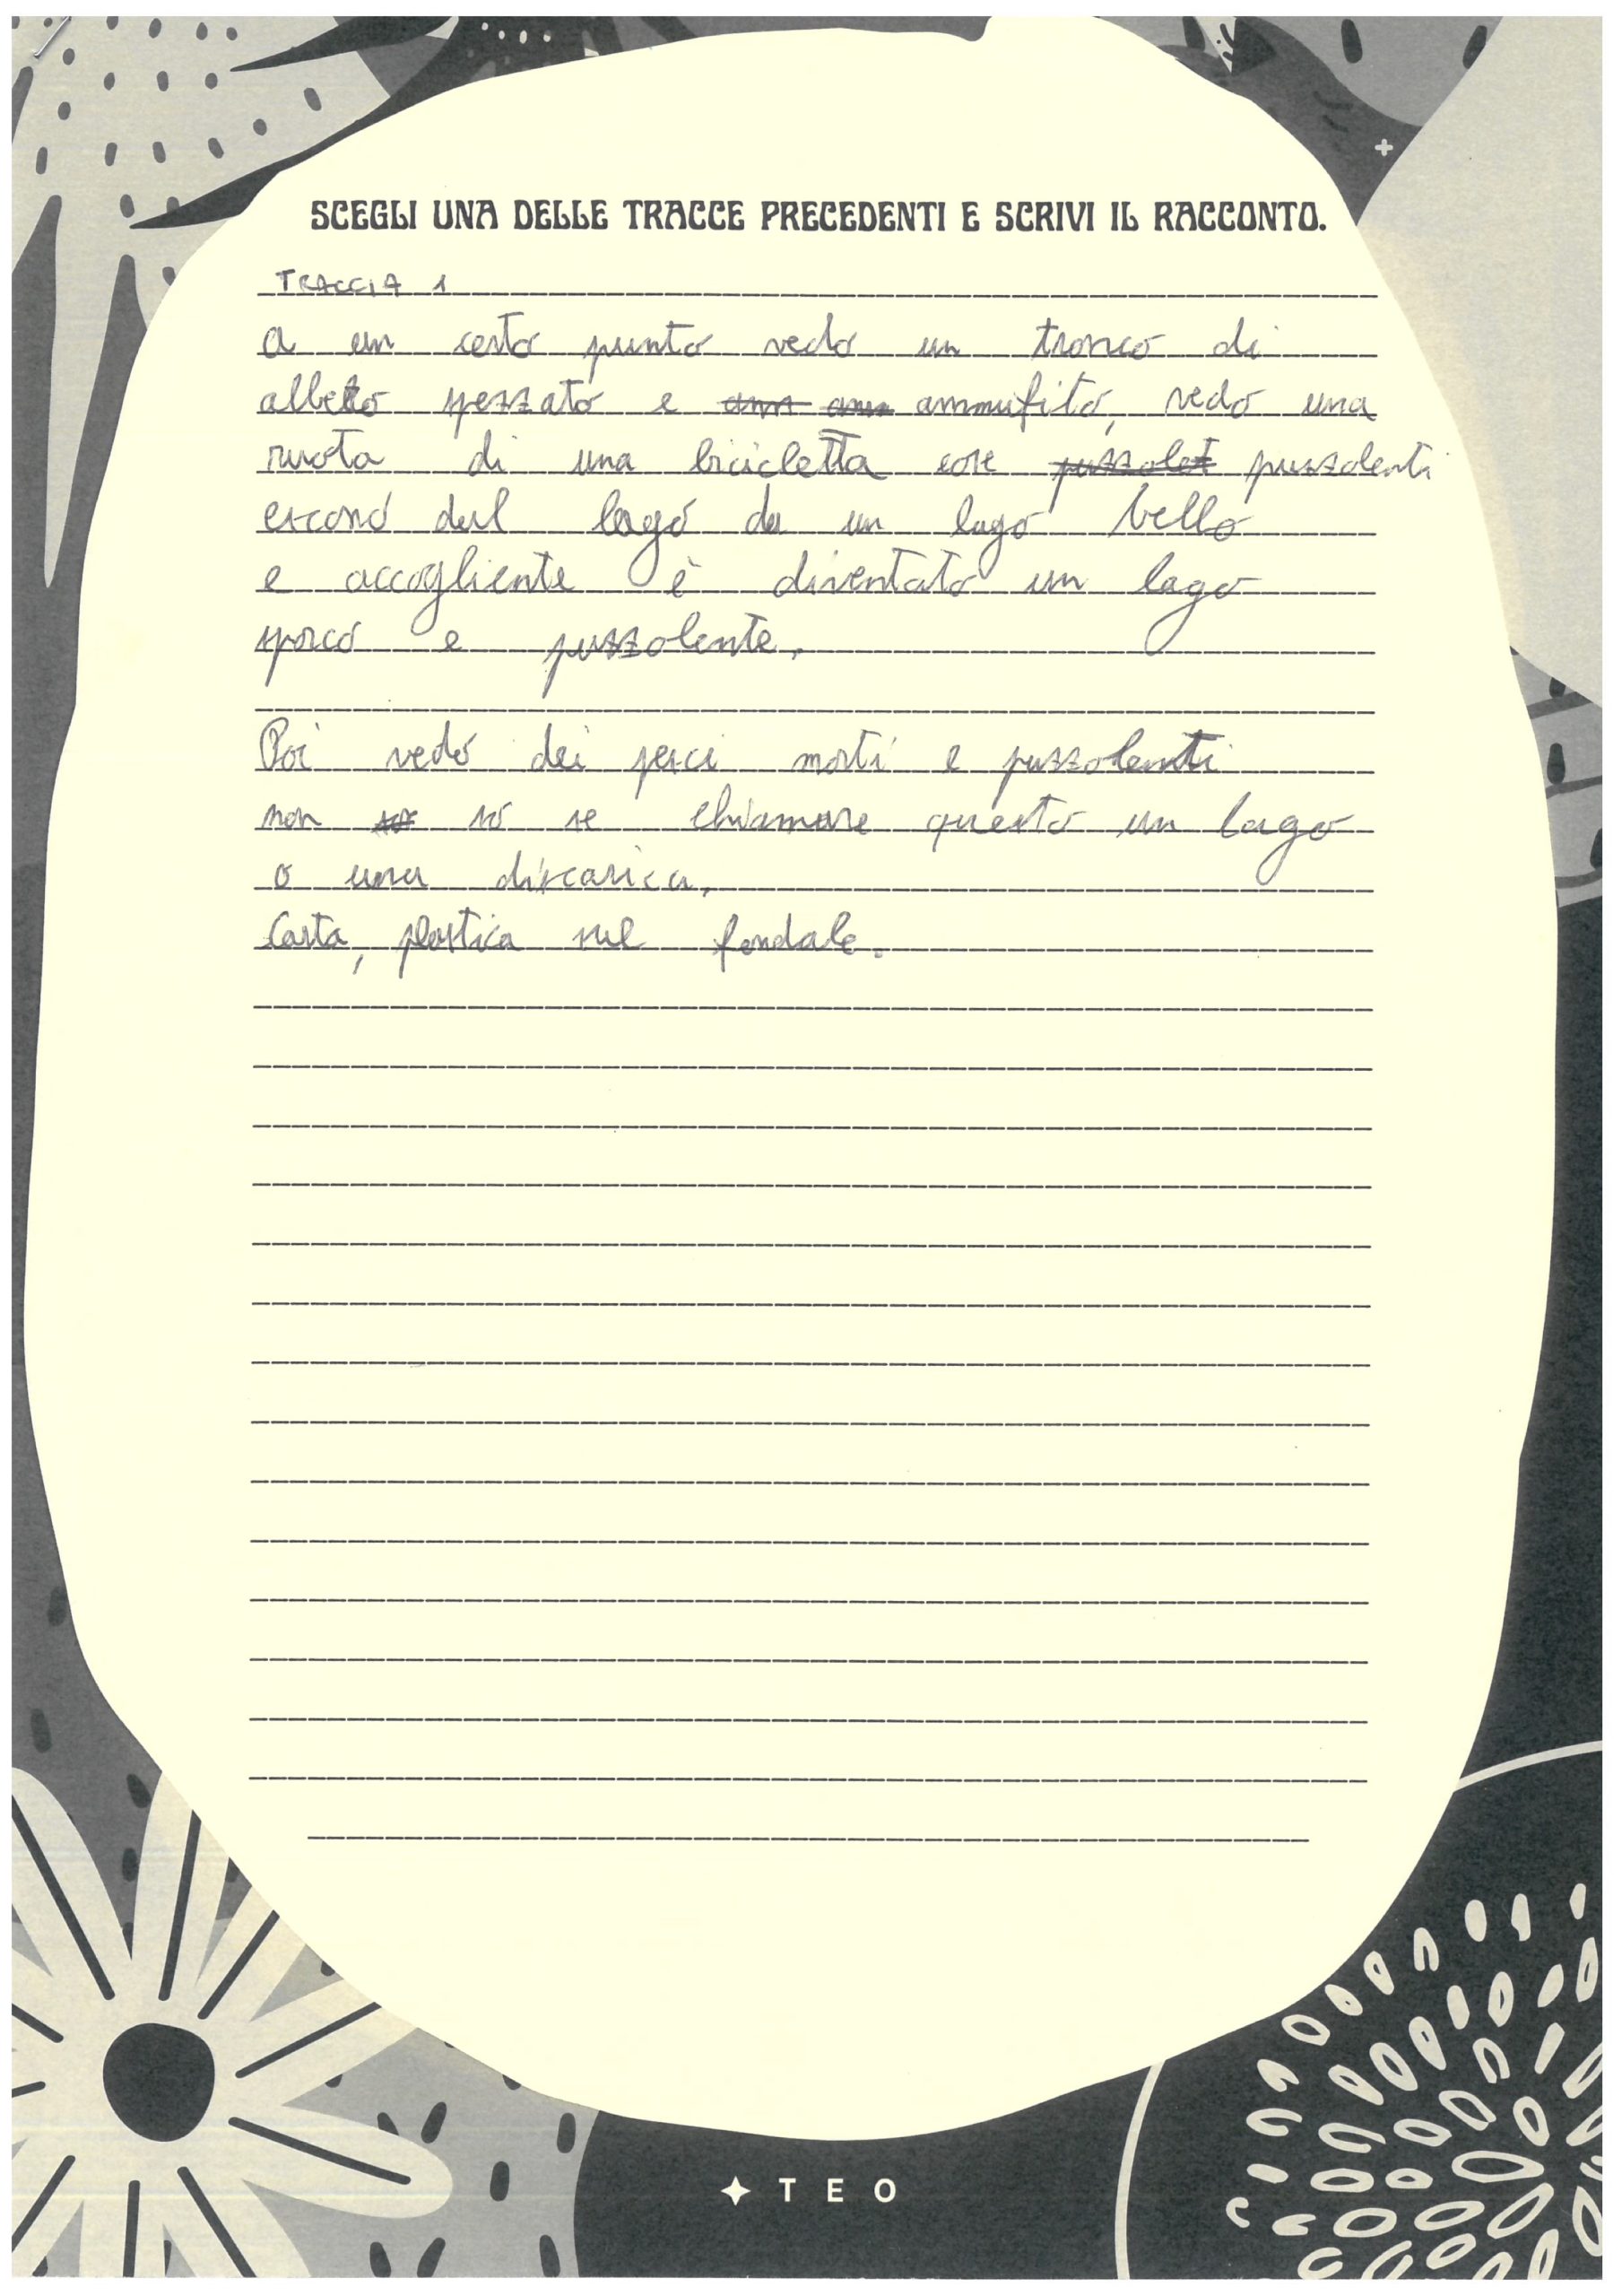 SCEGLI UNA DELLE TRACCE PRECEDENTI E SCRIVI IL RACCONTO.
TRACCIA 1
A un certo punto vedo un tronco di
albero spezzato e ammufito, vedo una
ruota di una bicicletta cose puzzolenti
escono dal lago da un lago bello
e accogliente è diventato un lago
sporco e puzzolente.
Poi vedo dei pesci morti e puzzolenti
non so se chiamare questo un lago
o una discarica.
Carta, plastica sul fondale.
TEO